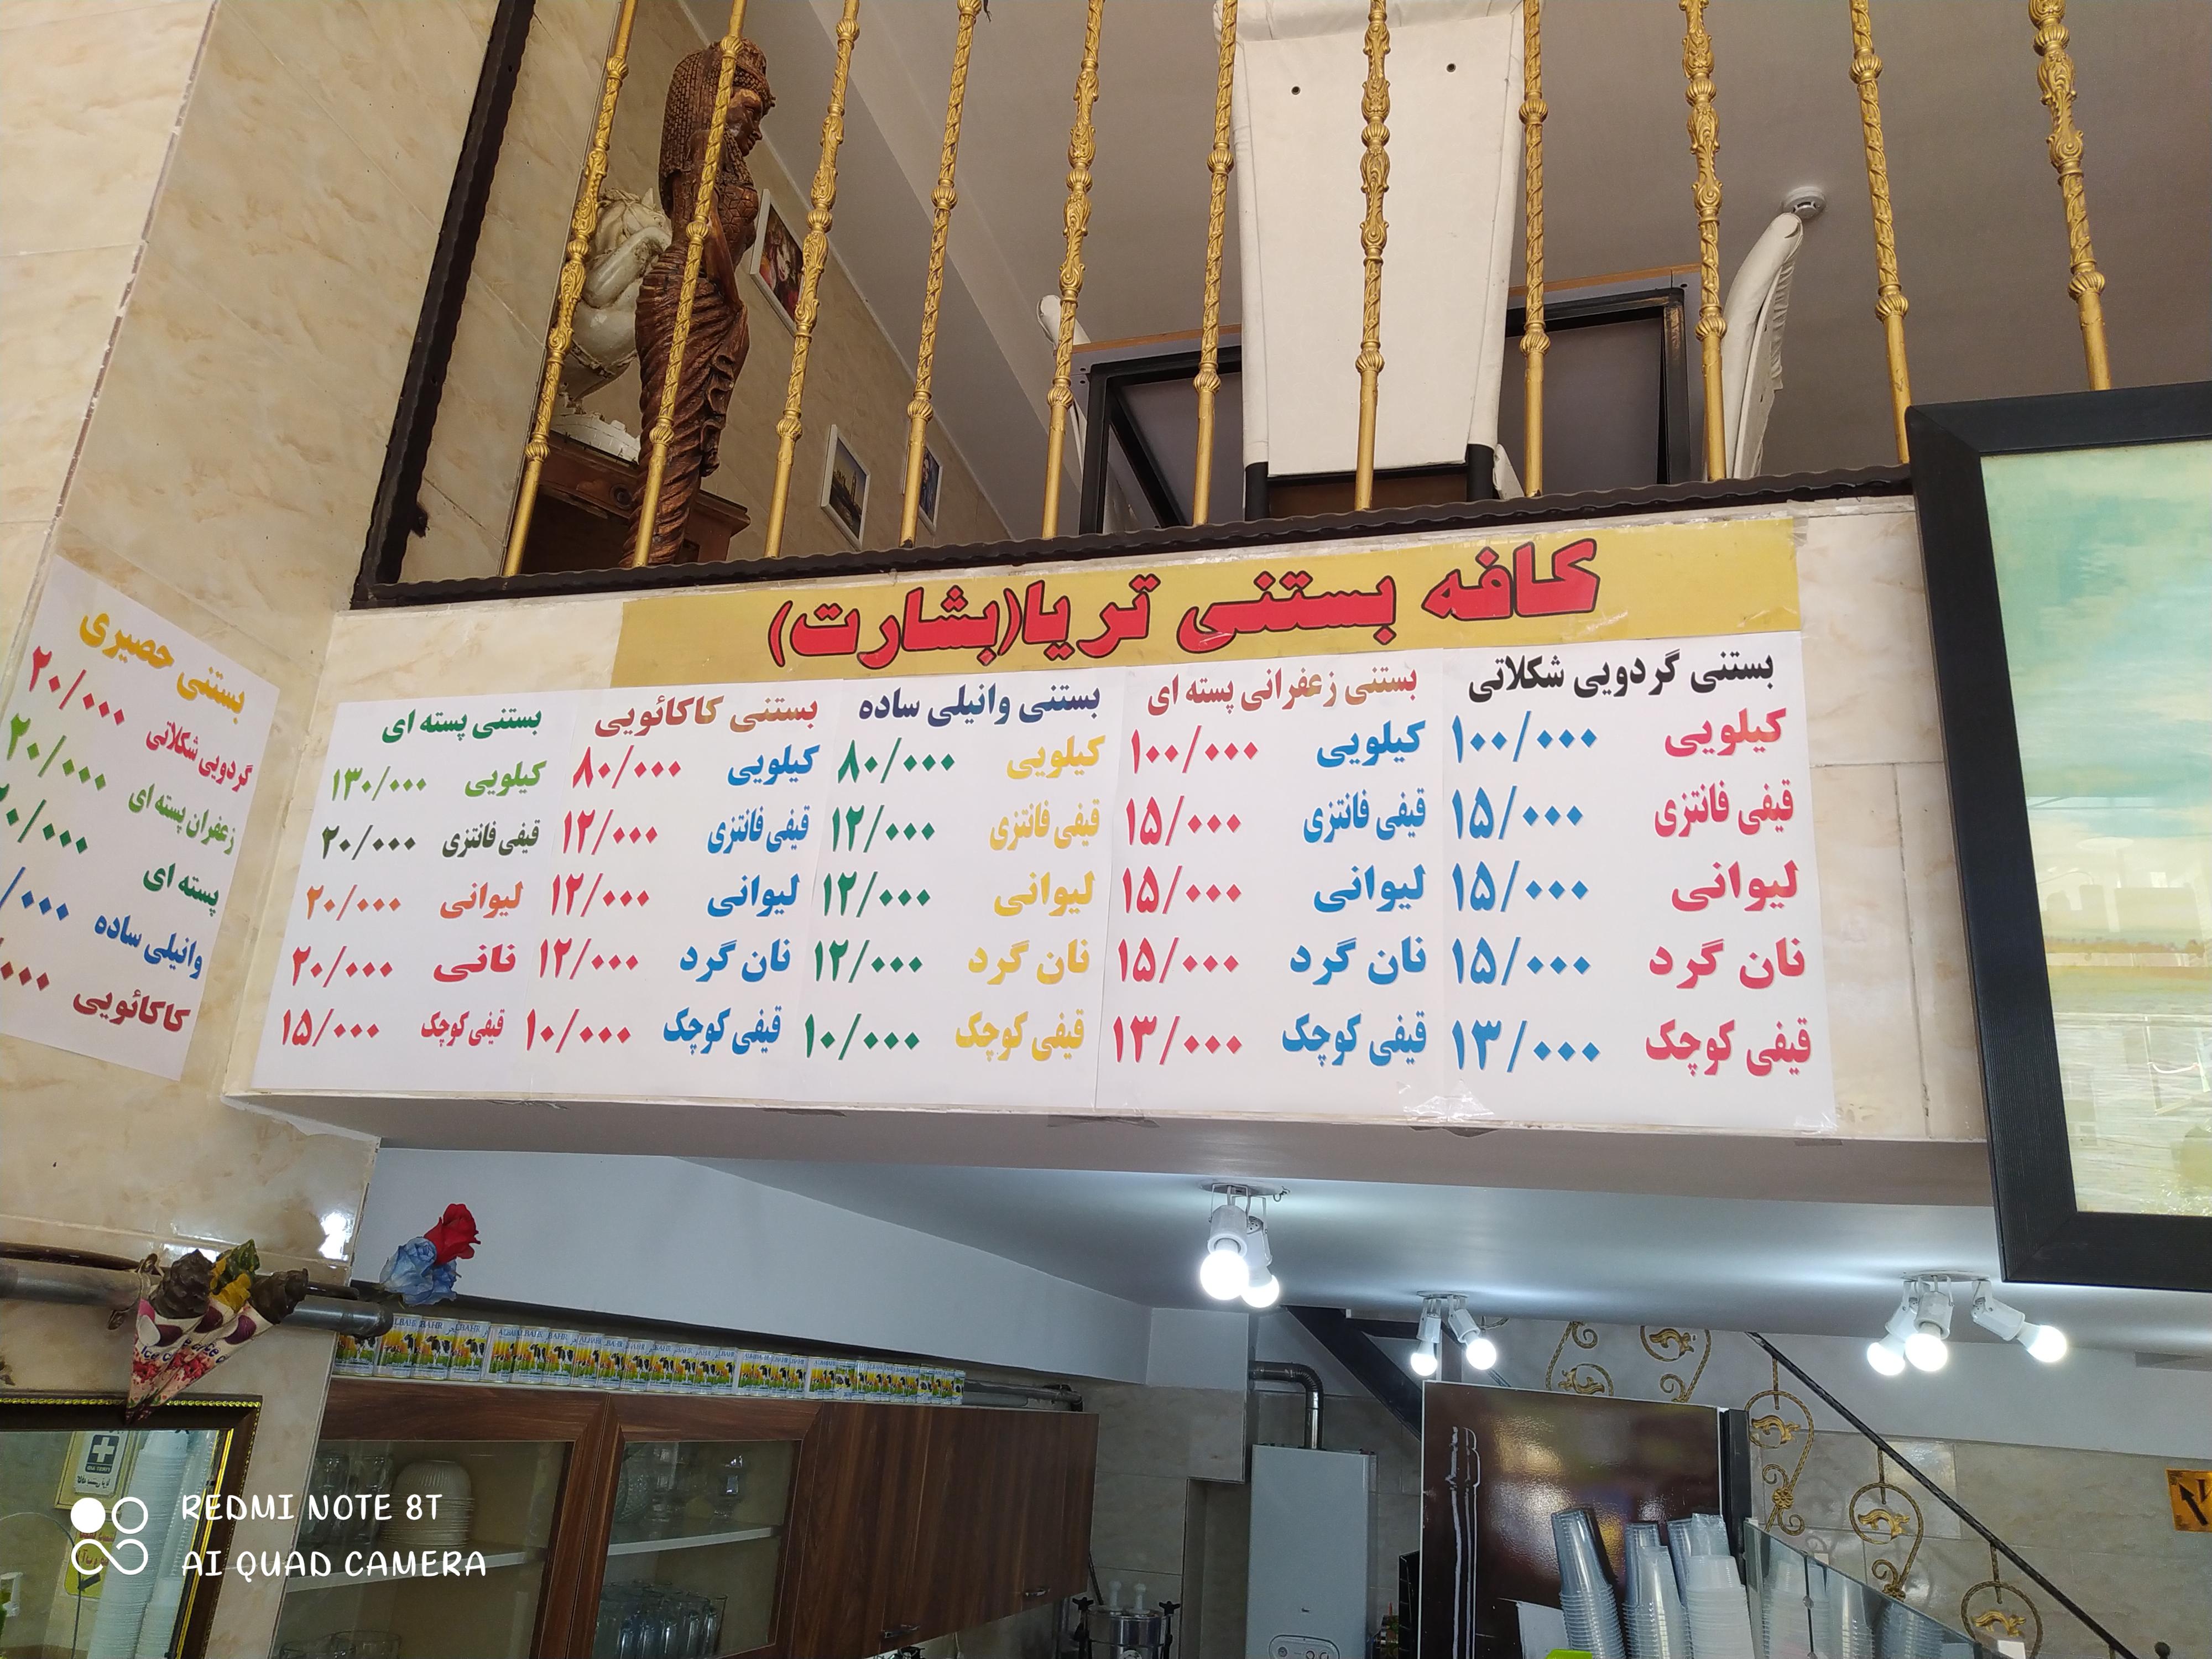 کافه بستنی تریا(بشارت)
بستنی گردویی شکلاتی
کیلویی ۱۰۰/۰۰۰
قیفی فانتزی ۱۵/۰۰۰
لیوانی ۱۵/۰۰۰
نان گرد ۱۵/۰۰۰
قیفی کوچک ۱۳/۰۰۰
بستنی زعفرانی پسته ای
کیلویی ۱۰۰/۰۰۰
قیفی فانتزی ۱۵/۰۰۰
لیوانی ۱۵/۰۰۰
نان گرد ۱۵/۰۰۰
قیفی کوچک ۱۳/۰۰۰
بستنی وانیلی ساده
کیلویی ۸۰/۰۰۰
قیفی فانتزی ۱۲/۰۰۰
لیوانی ۱۲/۰۰۰
نان گرد ۱۲/۰۰۰
قیفی کوچک ۱۰/۰۰۰
بستنی کاکائویی
کیلویی ۸۰/۰۰۰
قیفی فانتزی ۱۲/۰۰۰
لیوانی ۱۲/۰۰۰
نان گرد ۱۲/۰۰۰
قیفی کوچک ۱۰/۰۰۰
بستنی پسته ای
کیلویی ۱۳۰/۰۰۰
قیفی فانتزی ۲۰/۰۰۰
لیوانی ۲۰/۰۰۰
نانی ۲۰/۰۰۰
قیفی کوچک ۱۵/۰۰۰
بستنی حصیری
گردویی شکلاتی ۲۰/۰۰۰
زعفران پسته ای ۲۰/۰۰۰
پسته ای ۲۰/۰۰۰
وانیلی ساده /۰۰۰
کاکائویی ۰۰۰
ALBAHR
REDMI NOTE 8T
AI QUAD CAMERA